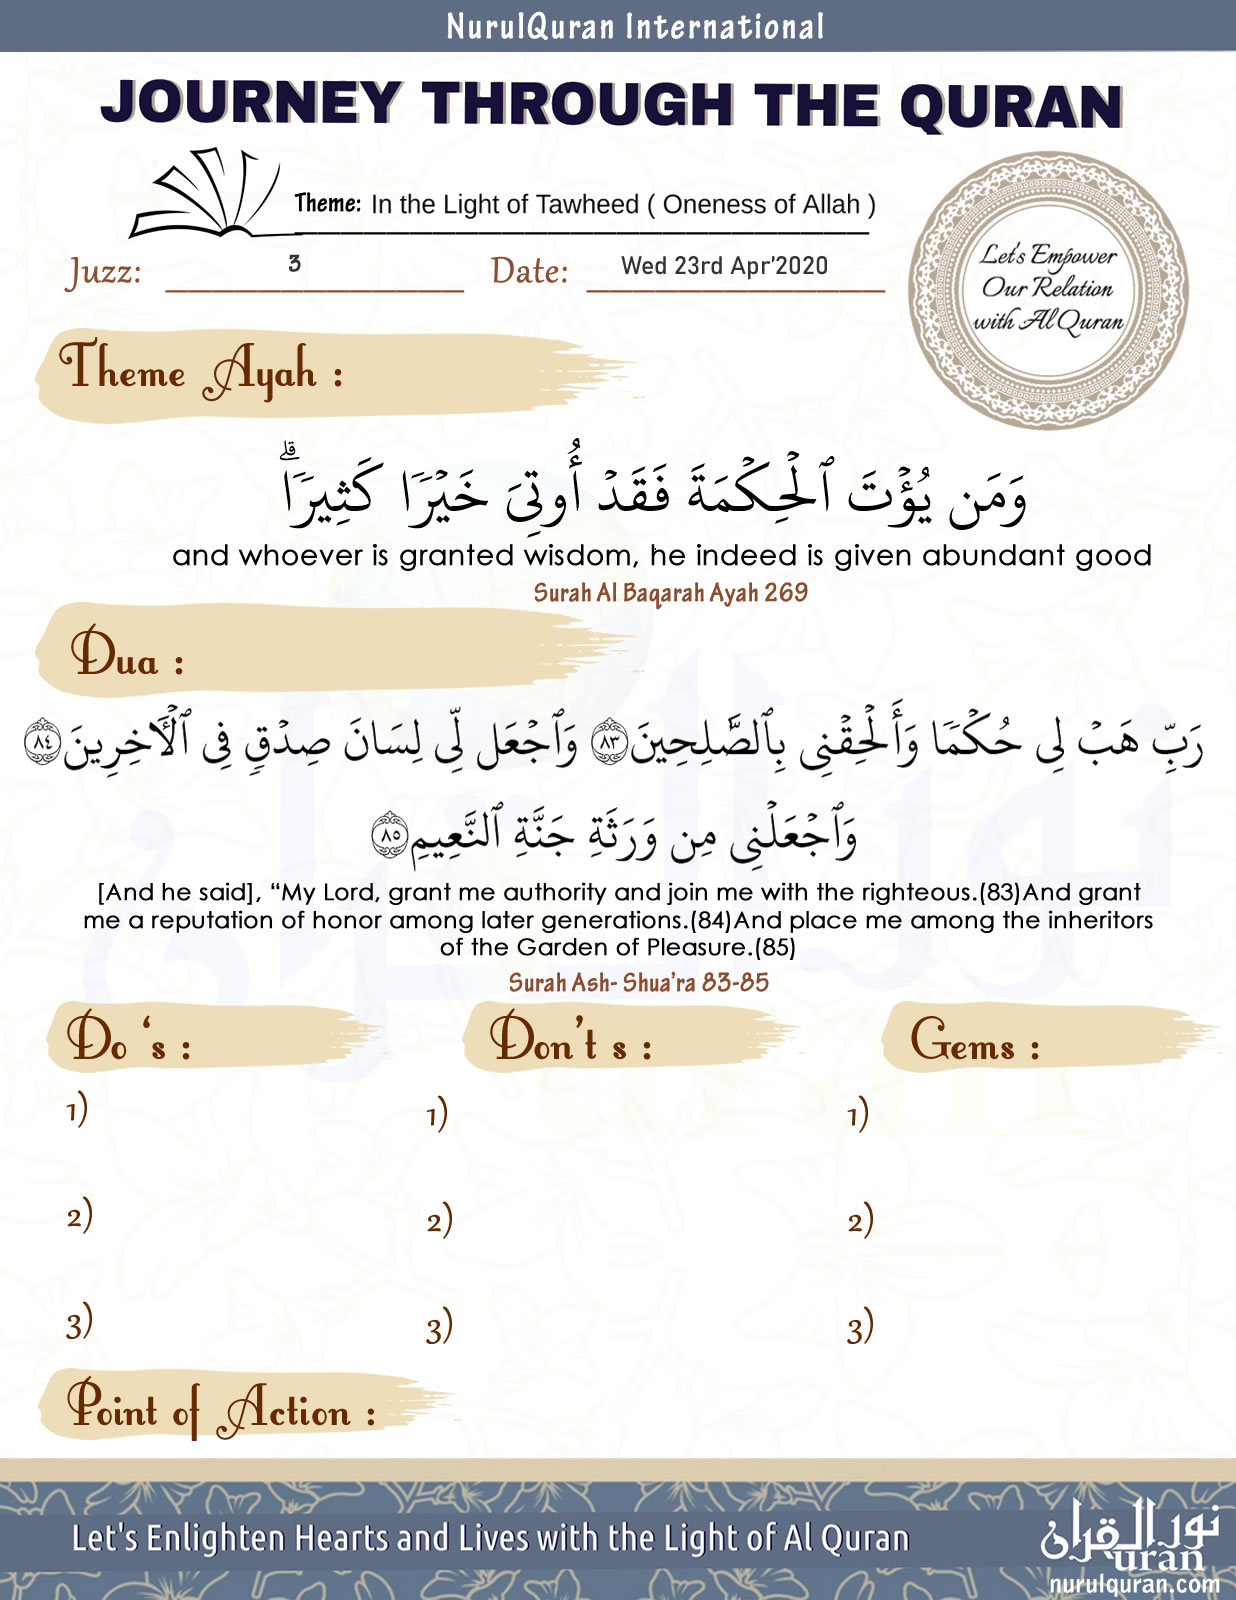 NurulQuran International
JOURNEY THROUGH THE QURAN
Theme: In the Light of Tawheed ( Oneness of Allah )
Juzz: 3 Date: Wed 23rd Apr'2020
Let's Empower
Our Relation
with Al Quran
Theme Ayah :
وَمَن يُؤْتَ ٱلْحِكْمَةَ فَقَدْ أُوتِىَ خَيْرًا كَثِيرًا ۗ
and whoever is granted wisdom, he indeed is given abundant good
Surah Al Baqarah Ayah 269
Dua :
رَبِّ هَبْ لِى حُكْمًا وَأَلْحِقْنِى بِٱلصَّٰلِحِينَ ٨٣ وَٱجْعَل لِّى لِسَانَ صِدْقٍ فِى ٱلْءَاخِرِينَ ٨٤
وَٱجْعَلْنِى مِن وَرَثَةِ جَنَّةِ ٱلنَّعِيمِ ٨٥
[And he said], “My Lord, grant me authority and join me with the righteous.(83)And grant
me a reputation of honor among later generations.(84)And place me among the inheritors
of the Garden of Pleasure.(85)
Surah Ash- Shua’ra 83-85
Do ‘s :
1)
2)
3)
Don’t s :
1)
2)
3)
Gems :
1)
2)
3)
Point of Action :
Let's Enlighten Hearts and Lives with the Light of Al Quran
نور القرآن
uran
nurulquran.com